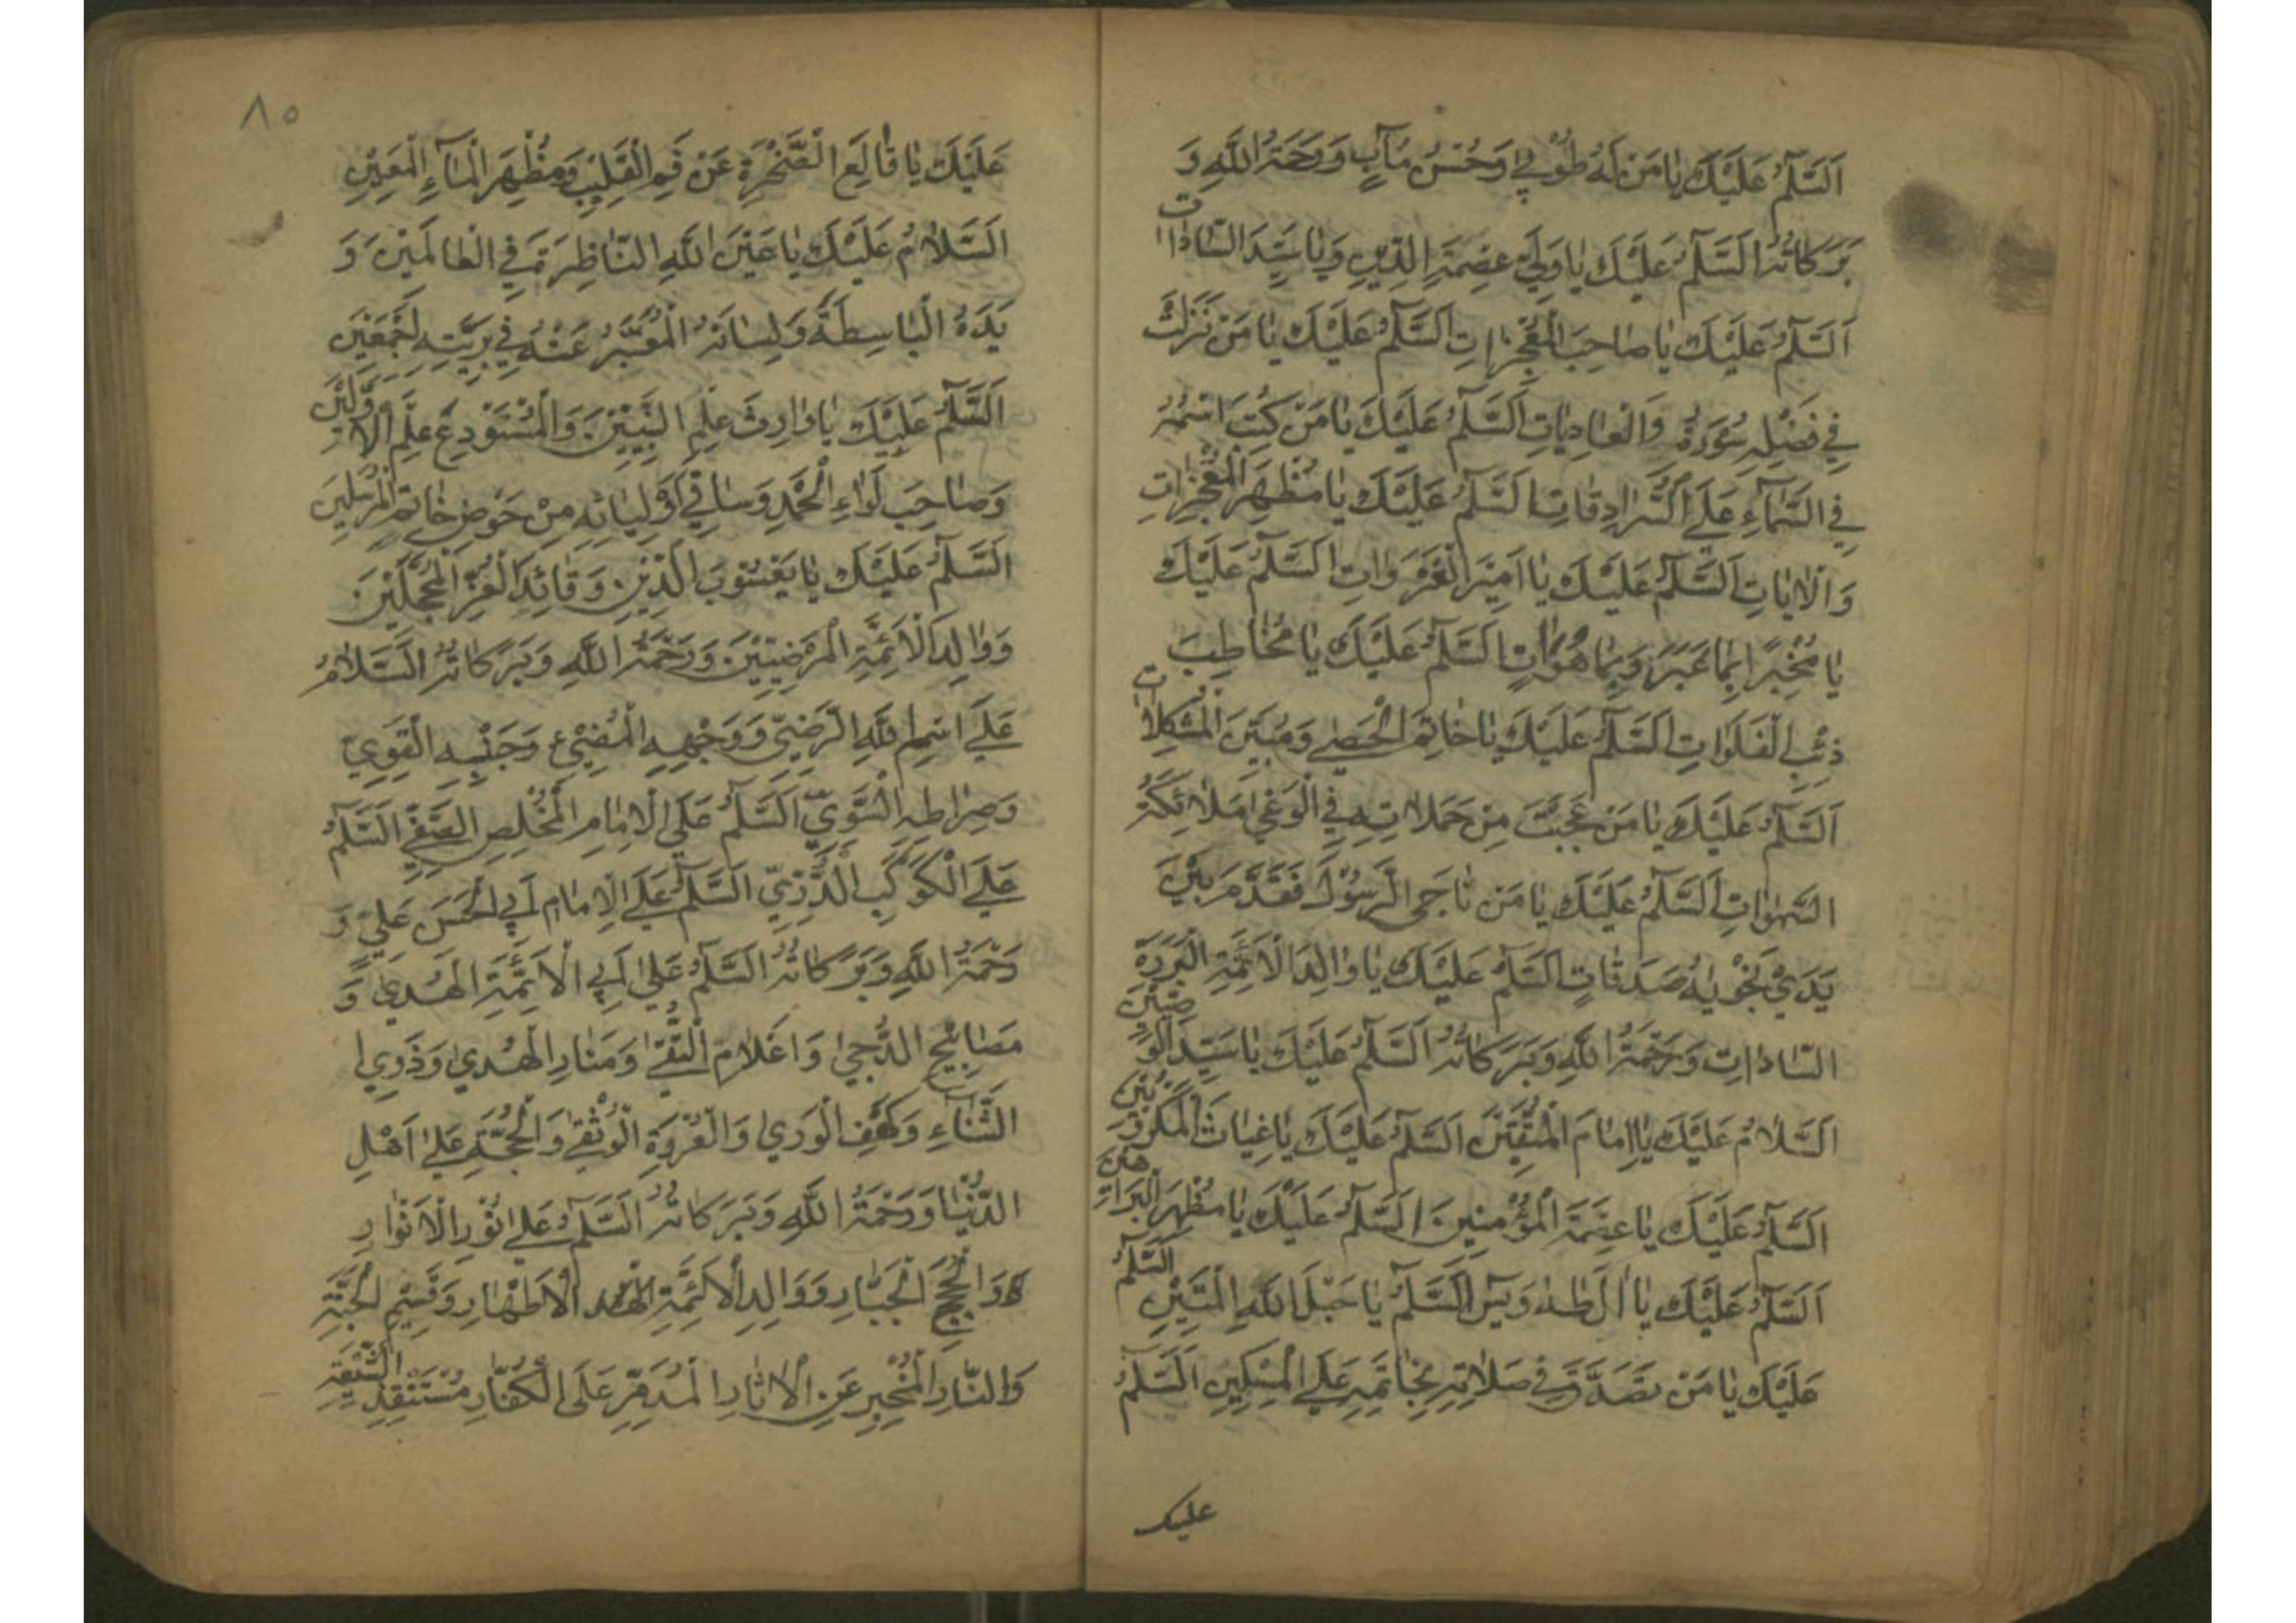 اَلسَّلٰمُ عَلَيْكَ يَا مَنْ لَهُ طُوْبٰي وَحُسْنُ مَاٰبٍ وَرَحْمَةُ اللهِ وَ
بَرَكَاتُهُ السَّلٰمُ عَلَيْكَ يَا وَلِيَّ عِصْمَةِ الدِّينِ وَيَا سَيِّدَ السَّادَاتِ
اَلسَّلٰمُ عَلَيْكَ يَا صَاحِبَ الْمُعْجِزَاتِ اَلسَّلٰمُ عَلَيْكَ يَا مَنْ نَزَلَتْ
فِي فَضْلِهِ سُوْرَةُ وَالْعَادِيَاتِ اَلسَّلٰمُ عَلَيْكَ يَا مَنْ كُتِبَ اسْمُهُ
فِي السَّمَآءِ عَلَي السُّرَادِقَاتِ اَلسَّلٰمُ عَلَيْكَ يَا مُظْهِرَ الْمُعْجِزَاتِ
وَالْاٰيَاتِ اَلسَّلٰمُ عَلَيْكَ يَا اَمِيْرَ الْغَزَوَاتِ اَلسَّلٰمُ عَلَيْكَ
يَا مُخْبِرًا بِمَا غَبَرَ وَبِمَا هُوَ اٰتٍ اَلسَّلٰمُ عَلَيْكَ يَا مُخَاطِبَ
ذِئْبِ الْفَلَوَاتِ اَلسَّلٰمُ عَلَيْكَ يَا خَاتِمَ الْحَصٰي وَمُبَيِّنَ الْمُشْكِلَاتِ
اَلسَّلٰمُ عَلَيْكَ يَا مَنْ عَجِبَتْ مِنْ حَمَلَاتِهِ فِي الْوَغٰي مَلَائِكَةُ
السَّمٰوَاتِ اَلسَّلٰمُ عَلَيْكَ يَا مَنْ نَاجَي الرَّسُوْلَ فَقَدَّمَ بَيْنَ
يَدَيْ نَجْوٰيهُ صَدَقَاتٍ اَلسَّلٰمُ عَلَيْكَ يَا وَالِدَ الْاَئِمَّةِ الْبَرَرَةِ
السَّادَاتِ وَرَحْمَةُ اللهِ وَبَرَكَاتُهُ اَلسَّلٰمُ عَلَيْكَ يَا سَيِّدَ الْوَصِيِّيْنَ
اَلسَّلَامُ عَلَيْكَ يَا اِمَامَ الْمُتَّقِيْنَ اَلسَّلٰمُ عَلَيْكَ يَا غِيَاثَ الْمَكْرُوْبِيْنَ
اَلسَّلٰمُ عَلَيْكَ يَا عِصْمَةَ الْمُؤْمِنِينَ اَلسَّلٰمُ عَلَيْكَ يَا مُظْهِرَ الْبَرَاهِينِ
اَلسَّلٰمُ عَلَيْكَ يَا اٰلَ طٰهٰ وَيٰسٓ اَلسَّلٰمُ يَا حَبْلَ اللهِ الْمَتِيْنِ السَّلٰمُ
عَلَيْكَ يَا مَنْ تَصَدَّقَ فِي صَلَاتِهِ بِخَاتَمِهِ عَلَي الْمِسْكِيْنِ اَلسَّلٰمُ
عليك
٨٥
عَلَيْكَ يَا قَالِعَ الصَّخْرَةِ عَنْ فَمِ الْقَلِيْبِ وَمُظْهِرَ الْمَآءِ الْمَعِيْنِ
اَلسَّلَامُ عَلَيْكَ يَا عَيْنَ اللهِ النَّاظِرَةَ فِي الْعَالَمِيْنَ وَ
يَدَهُ الْبَاسِطَةَ وَلِسَانَهُ الْمُعَبِّرُ عَنْهُ فِي بَرِيَّتِهِ اَجْمَعِيْنَ
اَلسَّلٰمُ عَلَيْكَ يَا وَارِثَ عِلْمِ النَّبِيِّيْنَ وَالْمُسْتَوْدِعَ عِلْمِ الْاَوَّلِيْنَ
وَصَاحِبَ لِوَاءِ الْحَمْدِ وَسَاقِي اَوْلِيَائِهِ مِنْ حَوْضِ خَاتَمِ الْمُرْسَلِينَ
اَلسَّلٰمُ عَلَيْكَ يَا يَعْسُوْبَ الدِّيْنِ وَقَائِدَ الْغُرِّ الْمُحَجَّلِيْنَ
وَوَالِدَ الْاَئِمَّةِ الْمَرْضِيِّيْنَ وَرَحْمَةُ اللهِ وَبَرَكَاتُهُ اَلسَّلَامُ
عَلَي اسْمِ اللهِ الرَّضِيِّ وَوَجْهِهِ الْمُضِيْءِ وَجَنْبِهِ الْقَوِيِّ
وَصِرَاطِهِ السَّوِيِّ اَلسَّلٰمُ عَلَي الْاِمَامِ الْمُخْلِصِ الصَّفِيِّ اَلسَّلٰمُ
عَلَي الْكَوْكَبِ الدُّرِّيِّ اَلسَّلٰمُ عَلَي الْاِمَامِ اَبِي الْحَسَنِ عَلِيٍّ وَ
رَحْمَةُ اللهِ وَبَرَكَاتُهُ اَلسَّلٰمُ عَلٰي اَبِي الْاَئِمَّةِ الْهُدٰي وَ
مَصَابِيْحِ الدُّجٰي وَاَعْلَامِ التُّقٰي وَمَنَارِ الْهُدٰي وَذَوِي
الثَّنَاءِ وَكَهْفِ الْوَرٰي وَالْعُرْوَةِ الْوُثْقٰي وَالْحُجَّةِ عَلٰي اَهْلِ
الدُّنْيَا وَرَحْمَةُ اللهِ وَبَرَكَاتُهُ اَلسَّلٰمُ عَلٰي نُوْرِ الْاَنْوَارِ
وَالْحُجَجِ الْجَبَّارِ وَوَالِدِ الْاَئِمَّةِ الْاَطْهَارِ وَقَسِيْمِ الْجَنَّةِ
وَالنَّارِ الْمُخْبِرِ عَنِ الْاٰثَارِ الْمُدَمِّرِ عَلَي الْكُفَّارِ مُسْتَنْقِذِ الشِّيْعَةِ